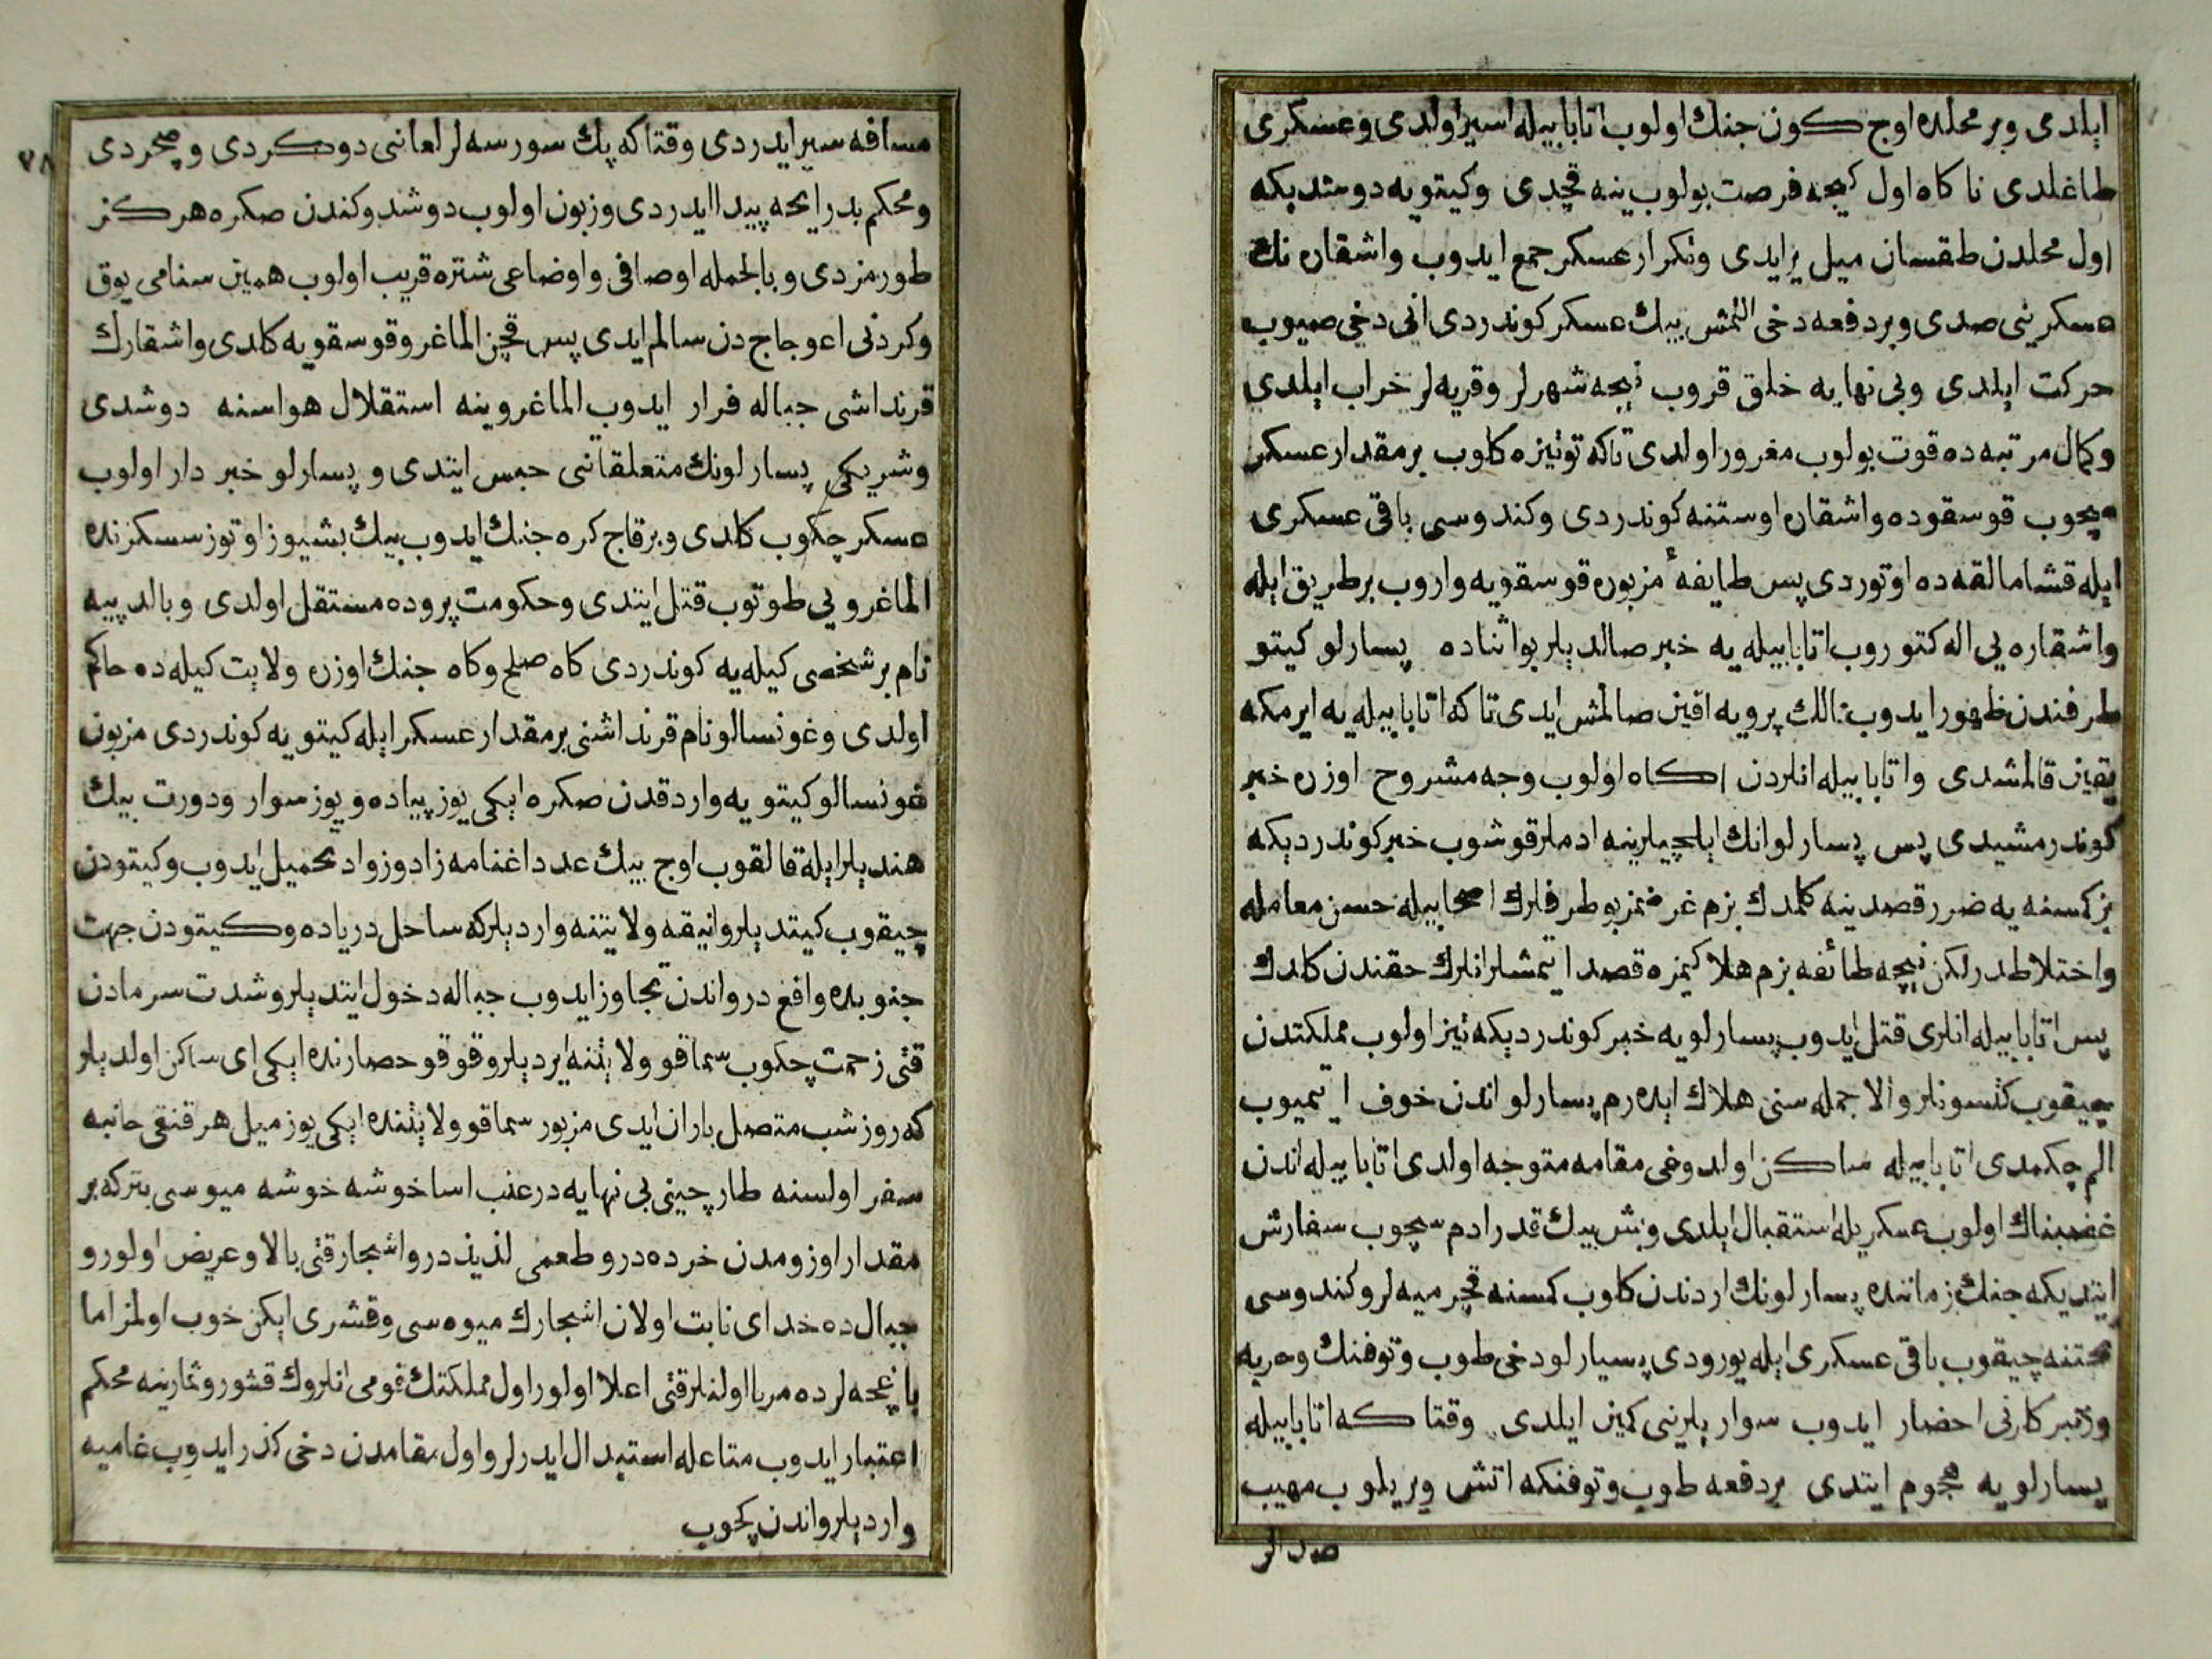 ایلدی وبر محلده اوچ كون جنك اولوب اتابابیله اسیر اولدی وعسكری
طاغلدی ناكاه اول كیجه فرصت بولوب ینه قچدی وكیتویه دوشدیكه
اول محلدن طقسان میل یر ایدی وتكرار عسكر جمع ایدوب واشقاره نك
عسكرینی صدی وبر دفعه دخی التمش بیك عسكر كوندردی انی دخی صیوب
حركت ایلدی وبی نهایه خلق قروب نیجه شهرلر وقریه لر خراب ایلدی
وكمال مرتبه ده قوت بولوب مغرور اولدی تاكه تونیزه كلوب بر مقدار عسكر
سچوب قوسقوده واشقاره اوستنه كوندردی وكندوسی باقی عسكری
ایله قشامالقه ده اوتوردی پس طایفهٔ مزبوره قوسقویه واروب بر طریق ایله
واشقاره یی اله كتوروب اتابابیله یه خبر صالدیلر بو اثناده پسارلو كیتو
طرفندن ظهور ایدوب ممالك پرویه اقین صالمش ایدی تاكه اتابابیله یه ایرمكه
یقین قالمشدی واتابابیله انلردن اكاه اولوب وجه مشروح اوزره خبر
كوندرمشیدی پس پسارلو انك ایلچیلرینه ادملر قوشوب خبر كوندردیكه
بز كمسنه یه ضرر قصدینه كلمدك بزم غرضمز بو طرفلرك اصحابیله حسن معامله
واختلاطدر لكن نیجه طائفه بزم هلاكیمزه قصد ایتمشلر انلرك حقندن كلدك
پس اتابابیله انلری قتل ایدوب پسارلویه خبر كوندردیكه تیز اولوب مملكتدن
چیقوب كتسونلر والا جمله سنی هلاك ایدرم پسارلو اندن خوف ایتمیوب
الم چكمدی اتابابیله ساكن اولدوغی مقامه متوجه اولدی اتابابیله اندن
غضبناك اولوب عسكریله استقبال ایلدی وبش بیك قدر ادم سچوب سفارش
ایتدیكه جنك زماننده پسارلونك اردندن كلوب كمسنه قچرمیه لر وكندوسی
تختنه چیقوب باقی عسكری ایله یورودی پسارلو دخی طوب وتوفنك وحربه
وتبركارنی احضار ایدوب سوار یلرینی كمین ایلدی وقتا كه اتابابیله
پسارلویه هجوم ایتدی بر دفعه طوب وتوفنكه اتش ویریلوب مهیب
صدالر
٧٨
مسافه سیر ایدردی وقتاكه پك سورسه لر لعابنی دوكردی وصچردی
ومحكم بد رایحه پیدا ایدردی وزبون اولوب دوشدوكندن صكره هركز
طورمزدی وبالجمله اوصافی واوضاعی شتره قریب اولوب همین سنامی یوق
وكردنی اعوجاج دن سالم ایدی پس قچن الماغرو قوسقویه كلدی واشقارك
قرنداشی جباله فرار ایدوب الماغرو ینه استقلال هواسنه دوشدی
وشریكی پسارلونك متعلقاتنی حبس ایتدی وپسارلو خبردار اولوب
عسكر چكوب كلدی وبر قاچ كره جنك ایدوب بیك بشیوز اوتوز سسكزنده
الماغرویی طوتوب قتل ایتدی وحكومت پروده مستقل اولدی وبالدیبیه
نام بر شخصی كیله یه كوندردی كاه صلح وكاه جنك اوزره ولایت كیله ده حاكم
اولدی وغونسالو نام قرنداشنی بر مقدار عسكر ایله كیتویه كوندردی مزبور
غونسالو كیتویه واردقدن صكره ایكی یوز پیاده ویوز سوار ودورت بیك
هندیلر ایله قالقوب اوچ بیك عدد اغنامه زاد وزواد تحمیل ایدوب وكیتودن
چیقوب كیتدیلر وانیقه ولایتنه واردیلر كه ساحل دریاده وكیتودن جهت
جنوبده واقع در واندن تجاوز ایدوب جباله دخول ایتدیلر وشدت سرمادن
قتی زحمت چكوب سماقو ولایتنه ایردیلر وقوقو حصارنده ایكی ای ساكن اولدیلر
كه روز شب متصل باران ایدی مزبور سماقو ولایتنده ایكی یوز میل هر قنقی جانبه
سفر اولسنه طارچینی بی نهایه در عنب اسا خوشه خوشه میوسی بتر كه بر
مقدار اوزومدن خرده در وطعمی لذیذدر واشجار قتی بالا وعریض اولور و
جبال ده خدای نابت اولان اشجارك میوه سی وقشری ایكن خوب اولمز اما
باغچه لرده مربا اولنلر قتی اعلا اولور اول مملكتك قومی انلروك قشور وثمارینه محكم
اعتبار ایدوب متاعله استبدال ایدرلر واول مقامدن دخی كذر ایدوب غامیه
واردیلر واندن كچوب